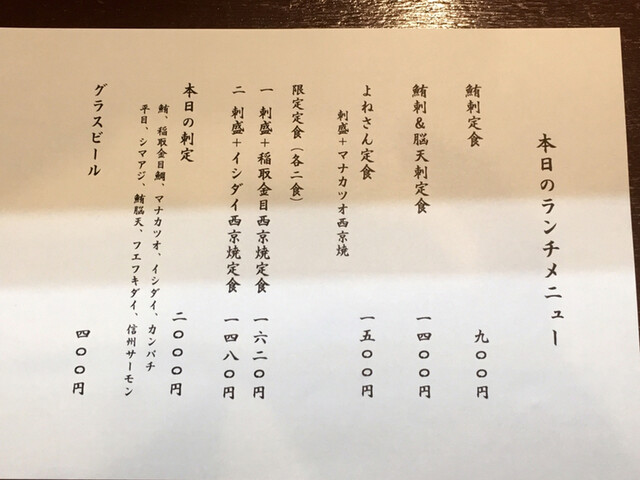 本日のランチメニュー
鮪刺定食 九〇〇円
鮪刺&脳天刺定食 一四〇〇円
よねさん定食 一五〇〇円
刺盛+マナカツオ西京焼
限定定食(各二食)
一 刺盛+稲取金目西京焼定食 一六二〇円
二 刺盛+イシダイ西京焼定食 一四八〇円
本日の刺定 二〇〇〇円
鮪、稲取金目鯛、マナカツオ、イシダイ、カンパチ
平目、シマアジ、鮪脳天、フエフキダイ、信州サーモン
グラスビール 四〇〇円